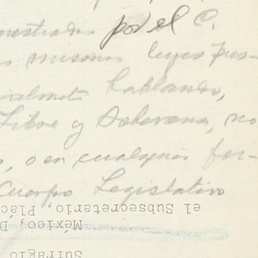 nestrados por el C.
s mismas leyes pres-
ralmente hablando,
Libre y Soberana, no
s, o en cualquier for-
Cuerpo Legislativo
el Subsecretario, Plác
México, D.
Sufragio